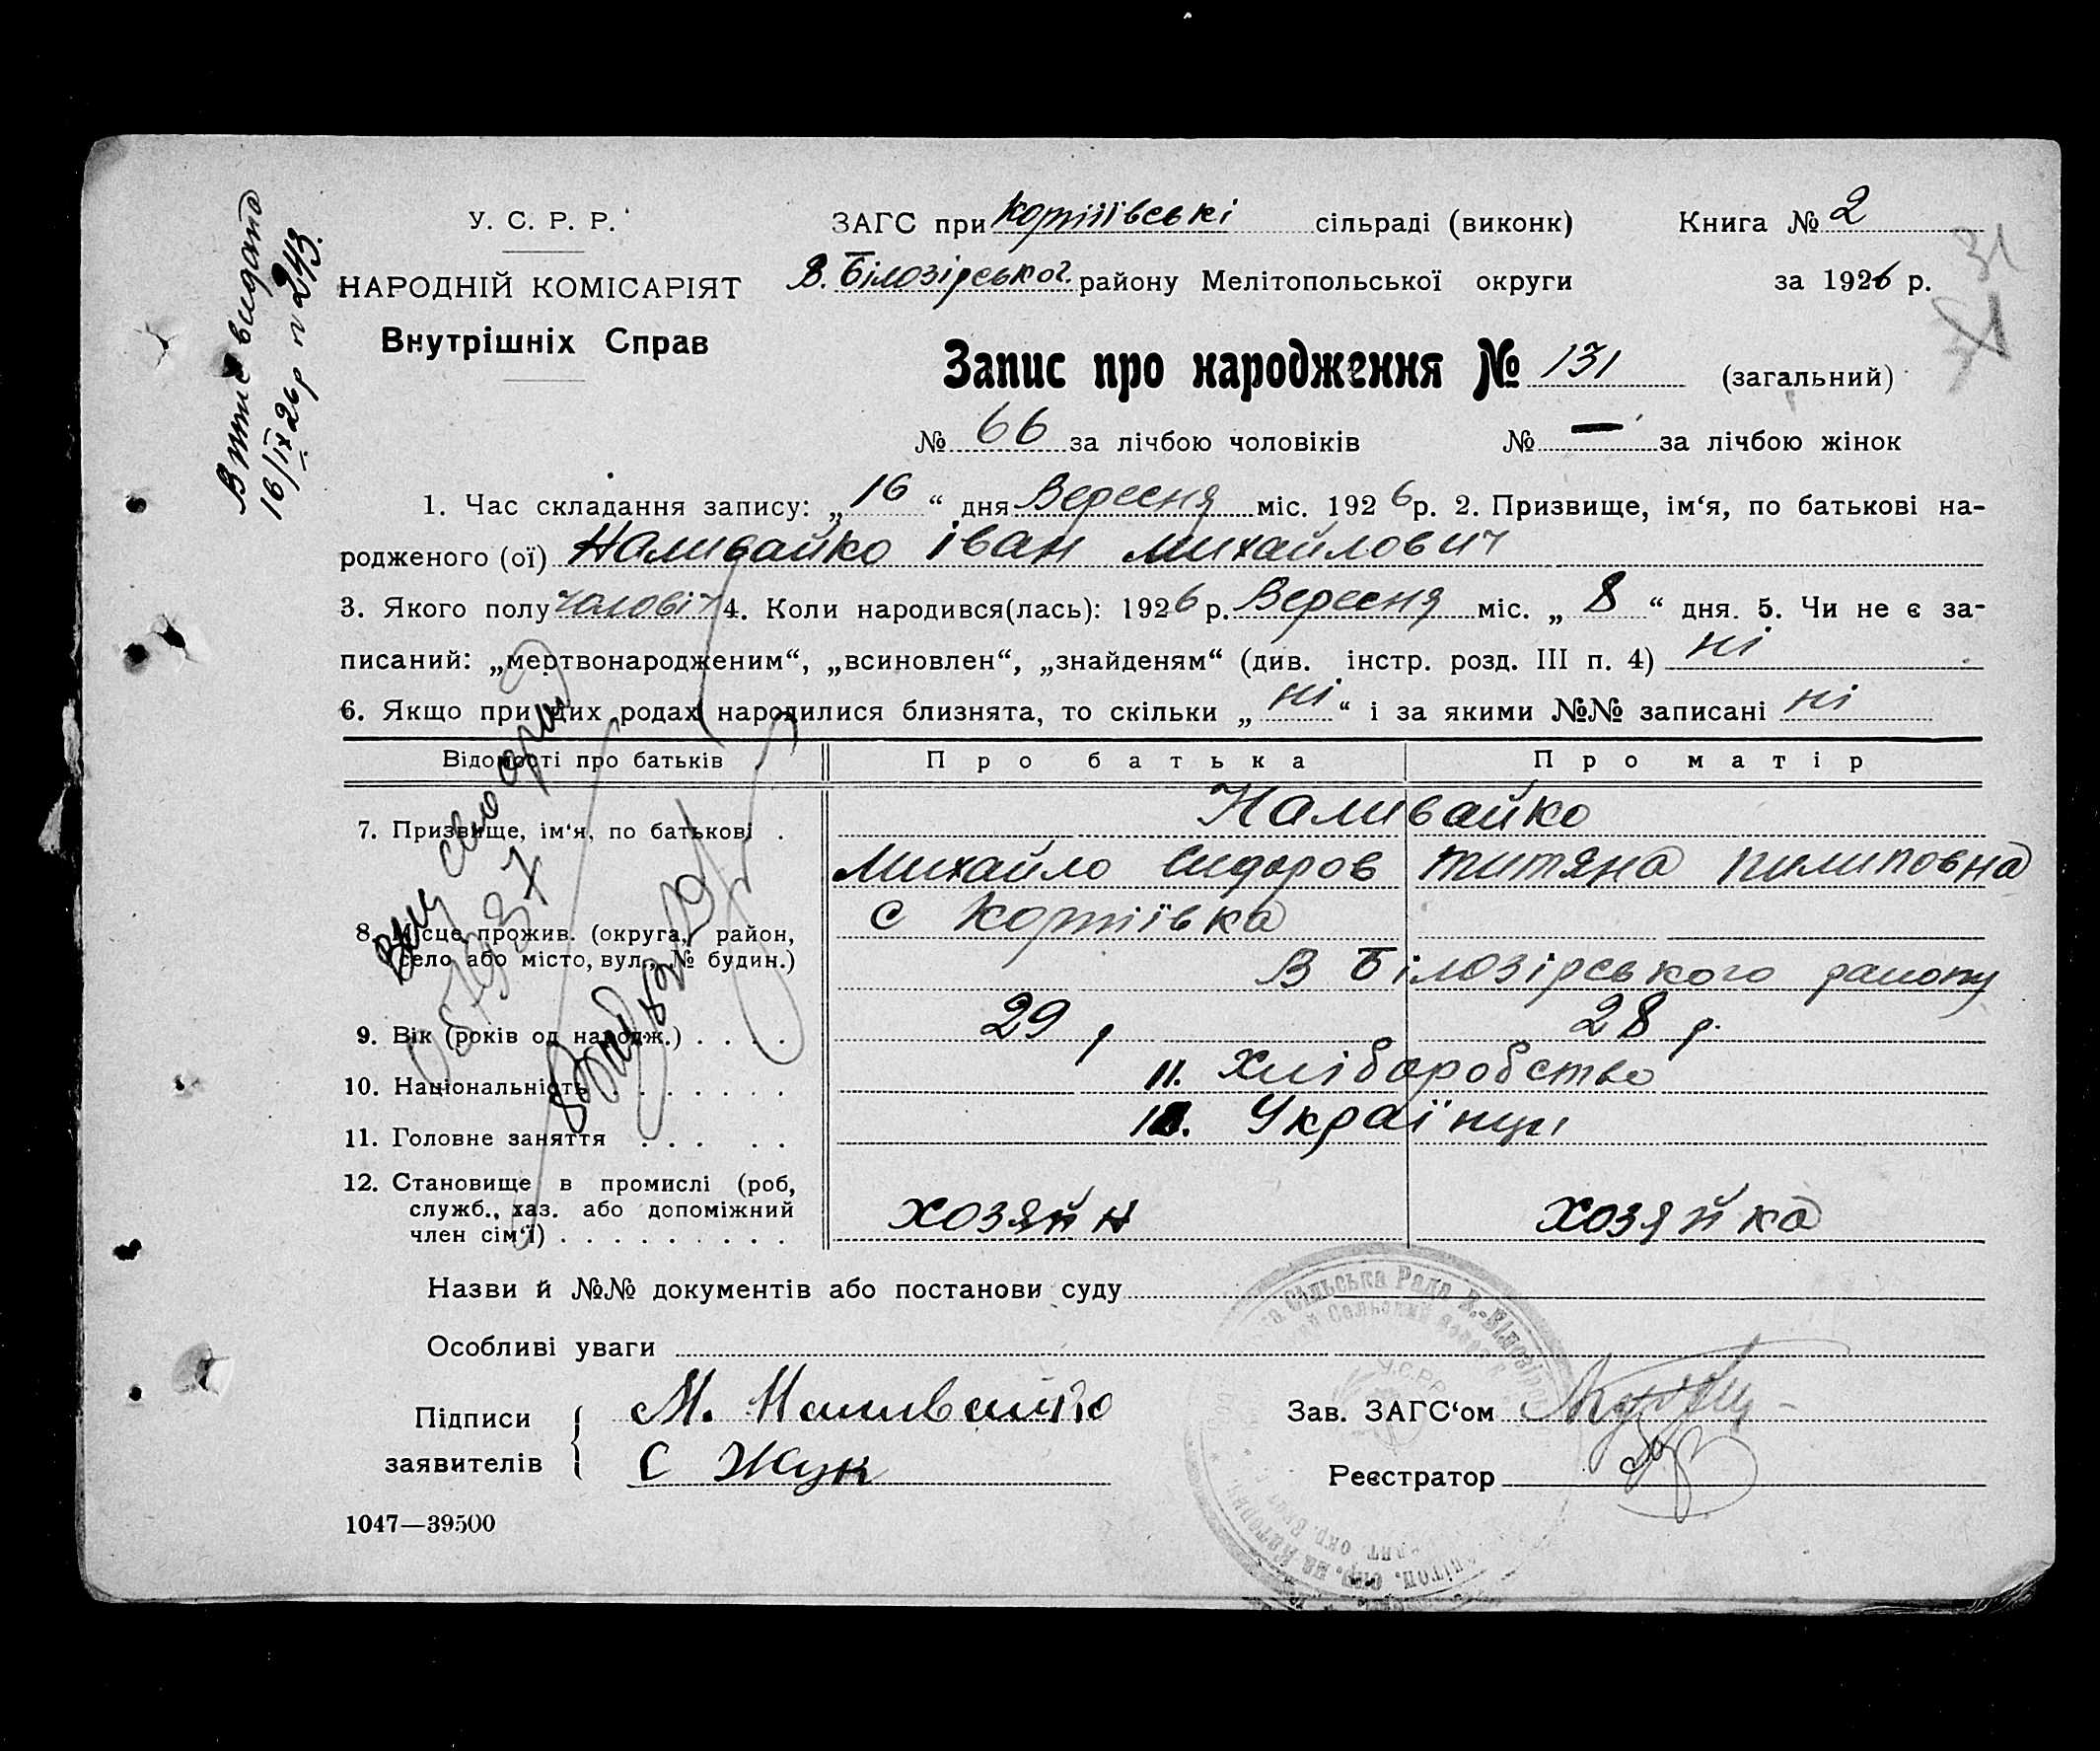 У. С. Р. Р.
НАРОДНІЙ КОМІСАРІЯТ
Внутрішніх Справ
ЗАГС при Кортіївські сільраді (виконк) Книга № 2
В. Білозірськог. району Мелітопольської округи за 1926 р.
31
Запис про народження № 131 (загальний)
№ 66 за лічбою чоловіків № — за лічбою жінок
Витис видано
16/IX 26р № 243.
1. Час складання запису: „16“ дня Вересня міс. 1926р. 2. Призвище, ім‘я, по батькові на-
родженого (ої) Наливайко Іван Михайлович
3. Якого полу чоловіч 4. Коли народився(лась): 1926 р. Вересня міс. „8“ дня. 5. Чи не є за-
писаний: „мертвонародженим“, „всиновлен“, „знайденям“ (див. інстр. розд. III п. 4) ні
6. Якщо при цих родах народилися близнята, то скільки „ні“ і за якими №№ записані ні
Відомості про батьків Про батька Про матір
7. Призвище, ім‘я, по батькові . Наливайко
Михайло Сидоров Титяна Пилиповна
8. Місце прожив. (округа, район,
село або місто, вул., № будин.)
с Кортіївка
В Білозірського району
9. Вік (років од народж.) . . . . 29 р 28 р.
10. Національність . . . . . . 11. Хліборобство
11. Головне заняття . . . . . 10. Українці
12. Становище в промислі (роб,
служб., хаз. або допоміжний
член сім‘ї) . . . . . . . . . хозяйн хозяйка
Назви й №№ документів або постанови суду
Особливі уваги
Підписи
заявителів
М. Наливайко
С Жук
Зав. ЗАГС‘ом
Реєстратор
1047—39500
Сільська Рада В.-Білозірс
У.С.Р.Р.